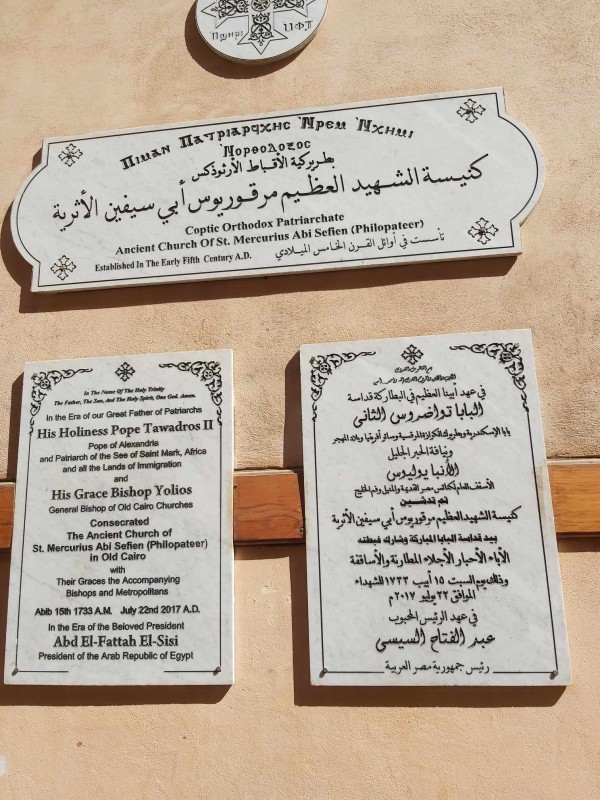 Ⲡϣⲏⲣⲓ
Ⲡⲓⲙⲁⲛ Ⲡⲁⲧⲣⲓⲁⲣⲭⲏⲥ Ⲛ̀ⲣⲉⲙ Ⲛ̀ⲭⲏⲙⲓ
Ⲛ̀ⲟⲣⲑⲟⲇⲟⲝⲟⲥ
بطريركية الأقباط الأرثوذكس
كنيسة الشهيد العظيم مرقوريوس أبي سيفين الأثرية
Coptic Orthodox Patriarchate
Ancient Church Of St. Mercurius Abi Sefien (Philopateer)
Established In The Early Fifth Century A.D. تأسست في أوائل القرن الخامس الميلادي
In The Name Of The Holy Trinity
The Father, The Son, And The Holy Spirit, One God. Amen.
In the Era of our Great Father of Patriarchs
His Holiness Pope Tawadros II
Pope of Alexandria
and Patriarch of the See of Saint Mark, Africa
and all the Lands of Immigration
and
His Grace Bishop Yolios
General Bishop of Old Cairo Churches
Consecrated
The Ancient Church of
St. Mercurius Abi Sefien (Philopateer)
in Old Cairo
with
Their Graces the Accompanying
Bishops and Metropolitans
Abib 15th 1733 A.M. July 22nd 2017 A.D.
In the Era of the Beloved President
Abd El-Fattah El-Sisi
President of the Arab Republic of Egypt
في عهد أبينا العظيم في البطاركة قداسة
البابا تواضروس الثاني
بابا الإسكندرية وبطريرك الكرازة المرقسية وسائر أفريقيا وبلاد المهجر
ونيافة الحبر الجليل
الأنبا يوليوس
الأسقف العام لكنائس مصر القديمة والمنيل وفم الخليج
تم تدشين
كنيسة الشهيد العظيم مرقوريوس أبي سيفين الأثرية
بيد قداسة البابا المباركة وشارك غبطته
الآباء الأحبار الأجلاء المطارنة والأساقفة
وذلك يوم السبت ١٥ أبيب ١٧٣٣ للشهداء
الموافق ٢٢ يوليو ٢٠١٧م
في عهد الرئيس المحبوب
عبد الفتاح السيسي
رئيس جمهورية مصر العربية